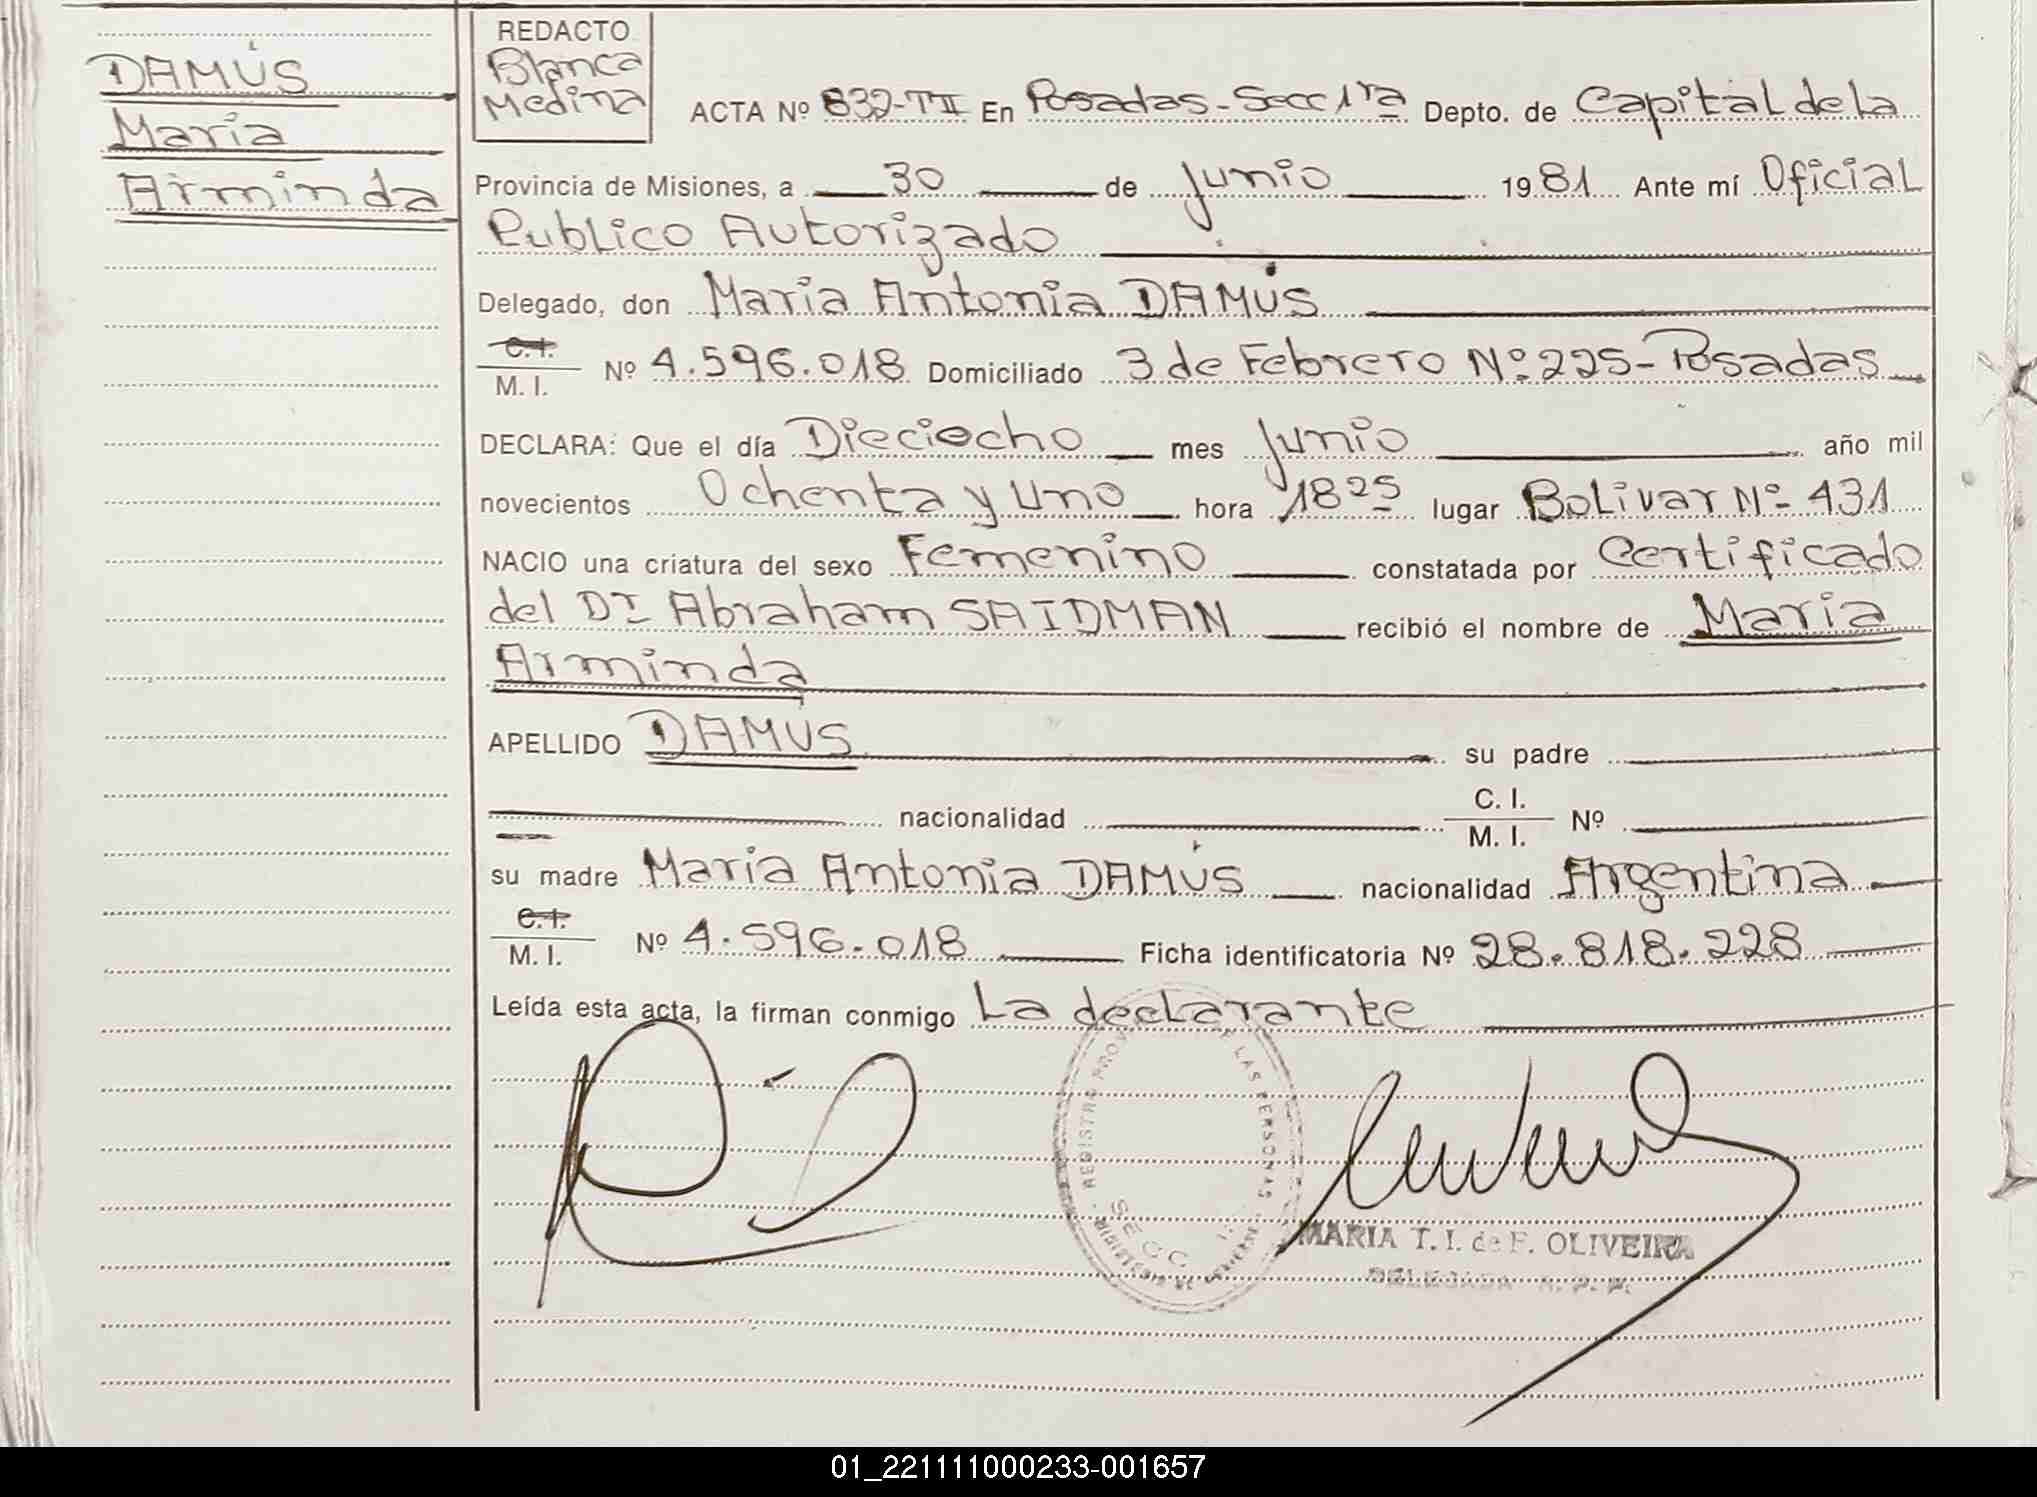 DAMÚS
María
Arminda
REDACTO
Blanca
Medina
ACTA Nº 832-TII En Posadas-Secc 1ra Depto. de Capital de la
Provincia de Misiones, a 30 de Junio 1981 Ante mí Oficial
Publico Autorizado
Delegado, don María Antonia DAMÚS
C.I.
M. I. Nº 4.596.018 Domiciliado 3 de Febrero Nº 225-Posadas
DECLARA: Que el día Dieciocho mes Junio año mil
novecientos Ochenta y Uno hora 18 25 lugar Bolivar Nº 431
NACIO una criatura del sexo Femenino constatada por Certificado
del Dr Abraham SAIDMAN recibió el nombre de María
Arminda
APELLIDO DAMUS su padre
nacionalidad C. I.
M. I. Nº
su madre María Antonia DAMÚS nacionalidad Argentina
C.I.
M. I. Nº 4.596.018 Ficha identificatoria Nº 28.818.228
Leída esta acta, la firman conmigo La declarante
LAS PERSONAS
REGISTRO PROV
SECC 1
MARIA T. I. de F. OLIVEIRA
01_221111000233-001657